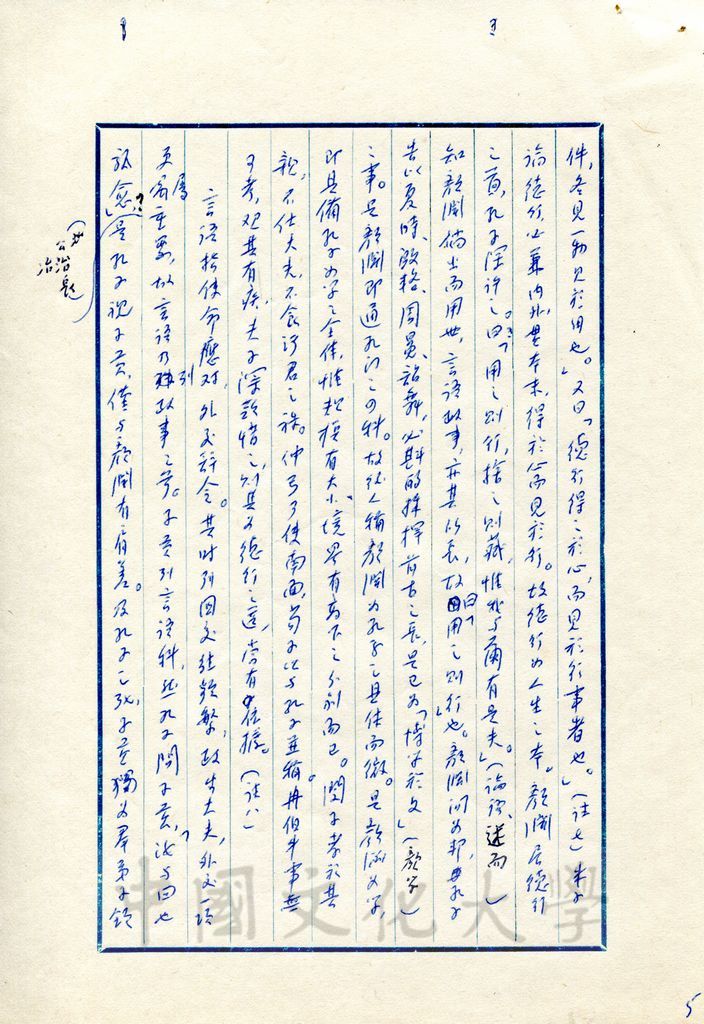 件,各見一物見於用也。」又曰「德行得之於心,而見於行事者也。」(註七)朱子
論德行,必兼內外,貫本末,得於心而見於行。故德行為人生之本。顏淵居德行
之首,孔子深許之。曰:「用之則行,捨之則藏,惟我與爾有是夫。」(論語、述而)
知顏淵倘出而用世,言語政事,亦其所長,故曰「用之則行」也。顏淵問為邦,與孔子
告以夏時、殷輅、周冕、韶舞,必斟酌採擇前古之長,是已為「博學於文」(顏答)
之事。是顏淵即通孔門之四科。故後人稱顏淵為孔子之具体而微。是顏淵為學,
即具備孔子為學之全体,惟規模有大小、境界有高下之分別而已。閔子孝於其
親,不仕大夫,不食汙君之祿。仲弓可使南面,荀子以與孔子並稱。冉伯牛事無
可考,觀其有疾,夫子深歎惜之,則其為德行之選,當有依據。(註八)
言語指使命應對,外交辭令。其時列國交往頻繁,政出大夫,外交一項
更屬重要,故言語乃列政事之旁。子貢列言語科,然孔子問子貢,「汝與回也
孰愈」,?是孔子視子貢,僅與顏淵有肩差。及孔子之歿,子貢獨為群弟子領
(公冶長)
冶
3
5
中國文化大學